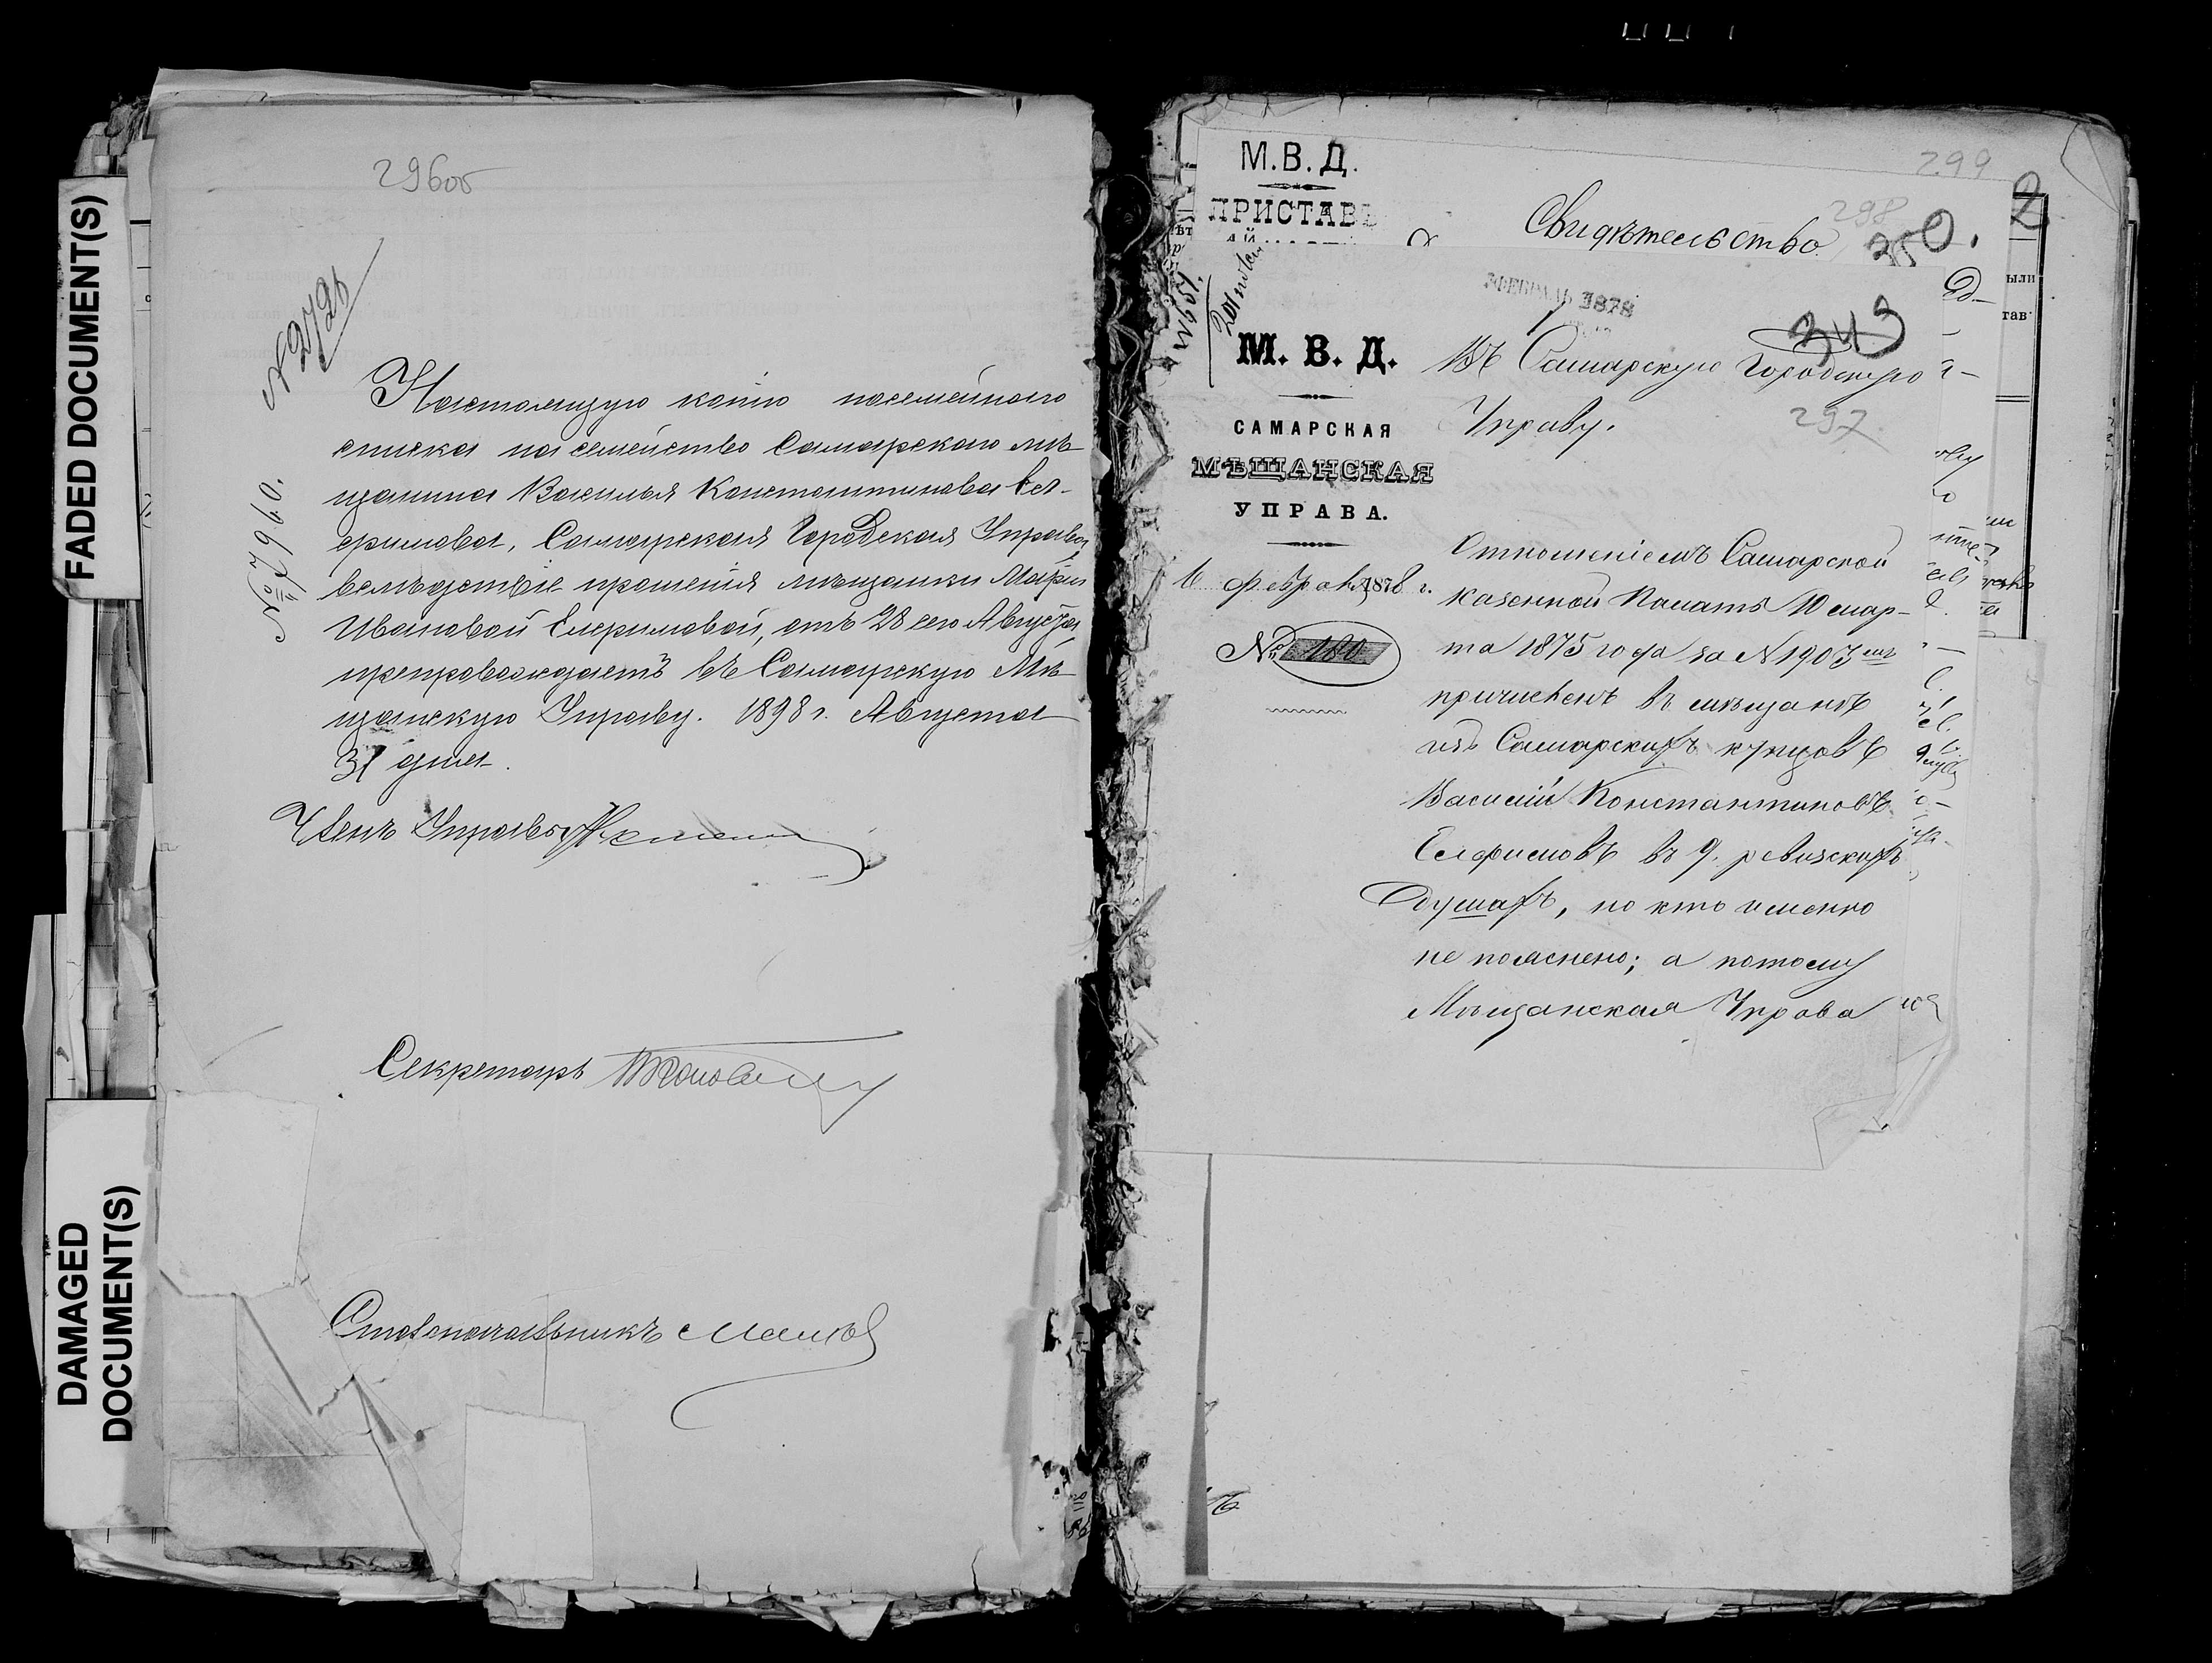 FADED DOCUMENT(S)
DAMAGED
DOCUMENT(S)
296об
№ 2729
№ 7960.
Настоящую копію посемейнаго
списка на семейство Самарскаго мѣ-
щанина Василья Константинова Ел-
фимова, Самарская Городская Управа,
вслѣдствіе прошенія мѣщанки Маріи
Ивановой Елфимовой, отъ 28 сего Августа,
препровождаетъ въ Самарскую Мѣ-
щанскую Управу. 1898 г. Августа
31 дня.
Членъ Управы
Секретарь
Столоначальникъ
299
М.В.Д.
ПРИСТАВЪ
Свидѣтельство.
298
300.
2
ыли
тав
№ 657.
ФЕВРАЛЬ 1878
349
М. В. Д.
САМАРСКАЯ
МѢЩАНСКАЯ
УПРАВА.
6 февраля 1878 г.
№ 180
Въ Самарскую Городскую
Управу.
297
Отношеніемъ Самарской
Казенной Палаты 10 мар-
та 1875 года за № 1903 мъ
причисленъ въ мѣщане
изъ Самарскихъ купцовъ
Василій Константиновъ
Елфимовъ въ 9. ревизскихъ
душахъ, но кто именно
не пояснено; а потому
Мѣщанская Управа